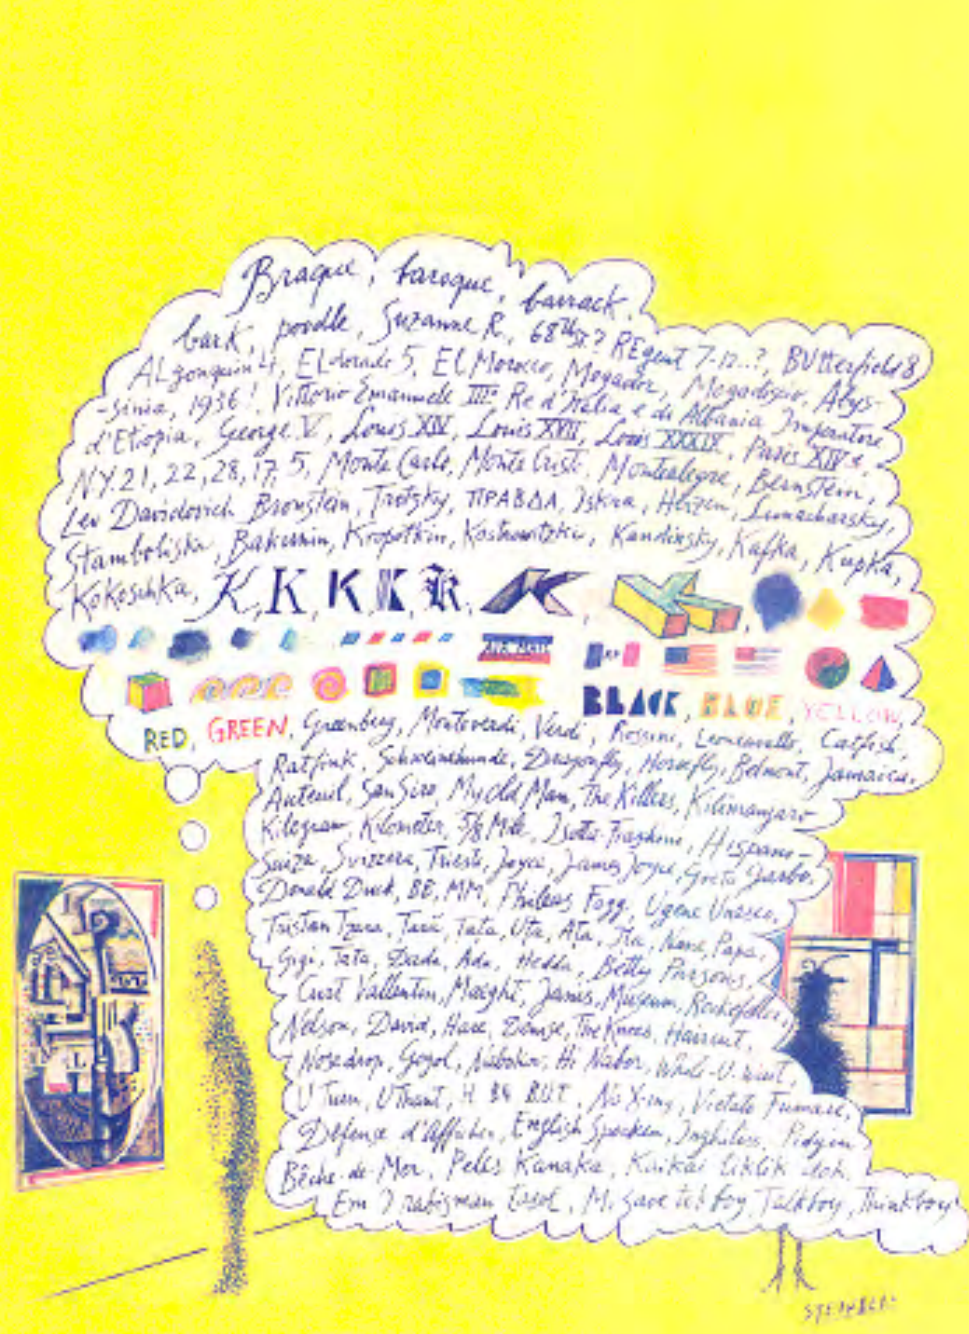 Braque, baroque, barrack,
bark, poodle, Suzanne R., 68th St? REgent 7-12..?, BUtterfield 8
ALgonquin 4, ELdorado 5, El Morocco, Mogador, Mogadiscio, Abys-
-sinia, 1936! Vittorio Emanuele III° Re d'Italia e di Albania Imperatore
d'Etiopia, George V, Louis XIV, Louis XVII, Louis XXXIX, Paris XIVe,
N.Y. 21, 22, 28, 17, 5, Monte Carlo, Monte Cristo, Montealegre, Bernstein,
Lev Davidovich Bronstein, Trotzky, ПРАВДА, Iskra, Herzen, Lunacharsky,
Stamboliski, Bakunin, Kropotkin, Kostrowitzki, Kandinsky, Kafka, Kupka,
Kokoschka, K, K, K, K, K, K, K,
BLACK, BLUE, YELLOW,
RED, GREEN, Greenberg, Monteverdi, Verdi, Rossini, Leoncavallo, Catfish,
Ratfink, Schweinehunde, Dragonfly, Horsefly, Belmont, Jamaica,
Auteuil, San Siro, My Old Man, The Killers, Kilimanjaro
Kilogram, Kilometer, 5/8 Mile, Isotta-Fraschini, Hispano-
Suiza, Svizzera, Trieste, Joyce, James Joyce, Greta Garbo,
Donald Duck, BB, MM, Phileas Fogg, Ugene Unesco,
Tristan Tzara, Tata, Uta, Ata, Ita, Papa,
Gigi, Tata, Dada, Ada, Hedda, Betty Parsons,
Curt Vallentin, Maeght, Janis, Museum, Rockefeller,
Nelson, David, Hare, Denise, The Knees, Haircut,
Nosedrop, Gogol, Nabokov, Hi Nabor, Whole-U-want,
U Turn, U Thant, BUT, No X-ing, Vietato Fumare,
Défense d'Afficher, English Spoken, Inghilese, Pidgin
Bêche-de-Mer, Peles Kanaka, Kaikai liklik doh.
Em, Talkboy, Thinkboy
STEINBERG